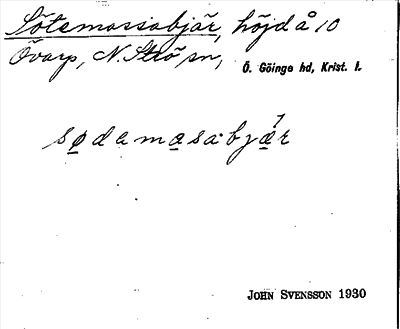 Sötemassabjär, höjd å 10
Övarp, N. Strö sn, Ö. Göinge hd, Krist. l.
sødemasabjær
JOHN SVENSSON 1930